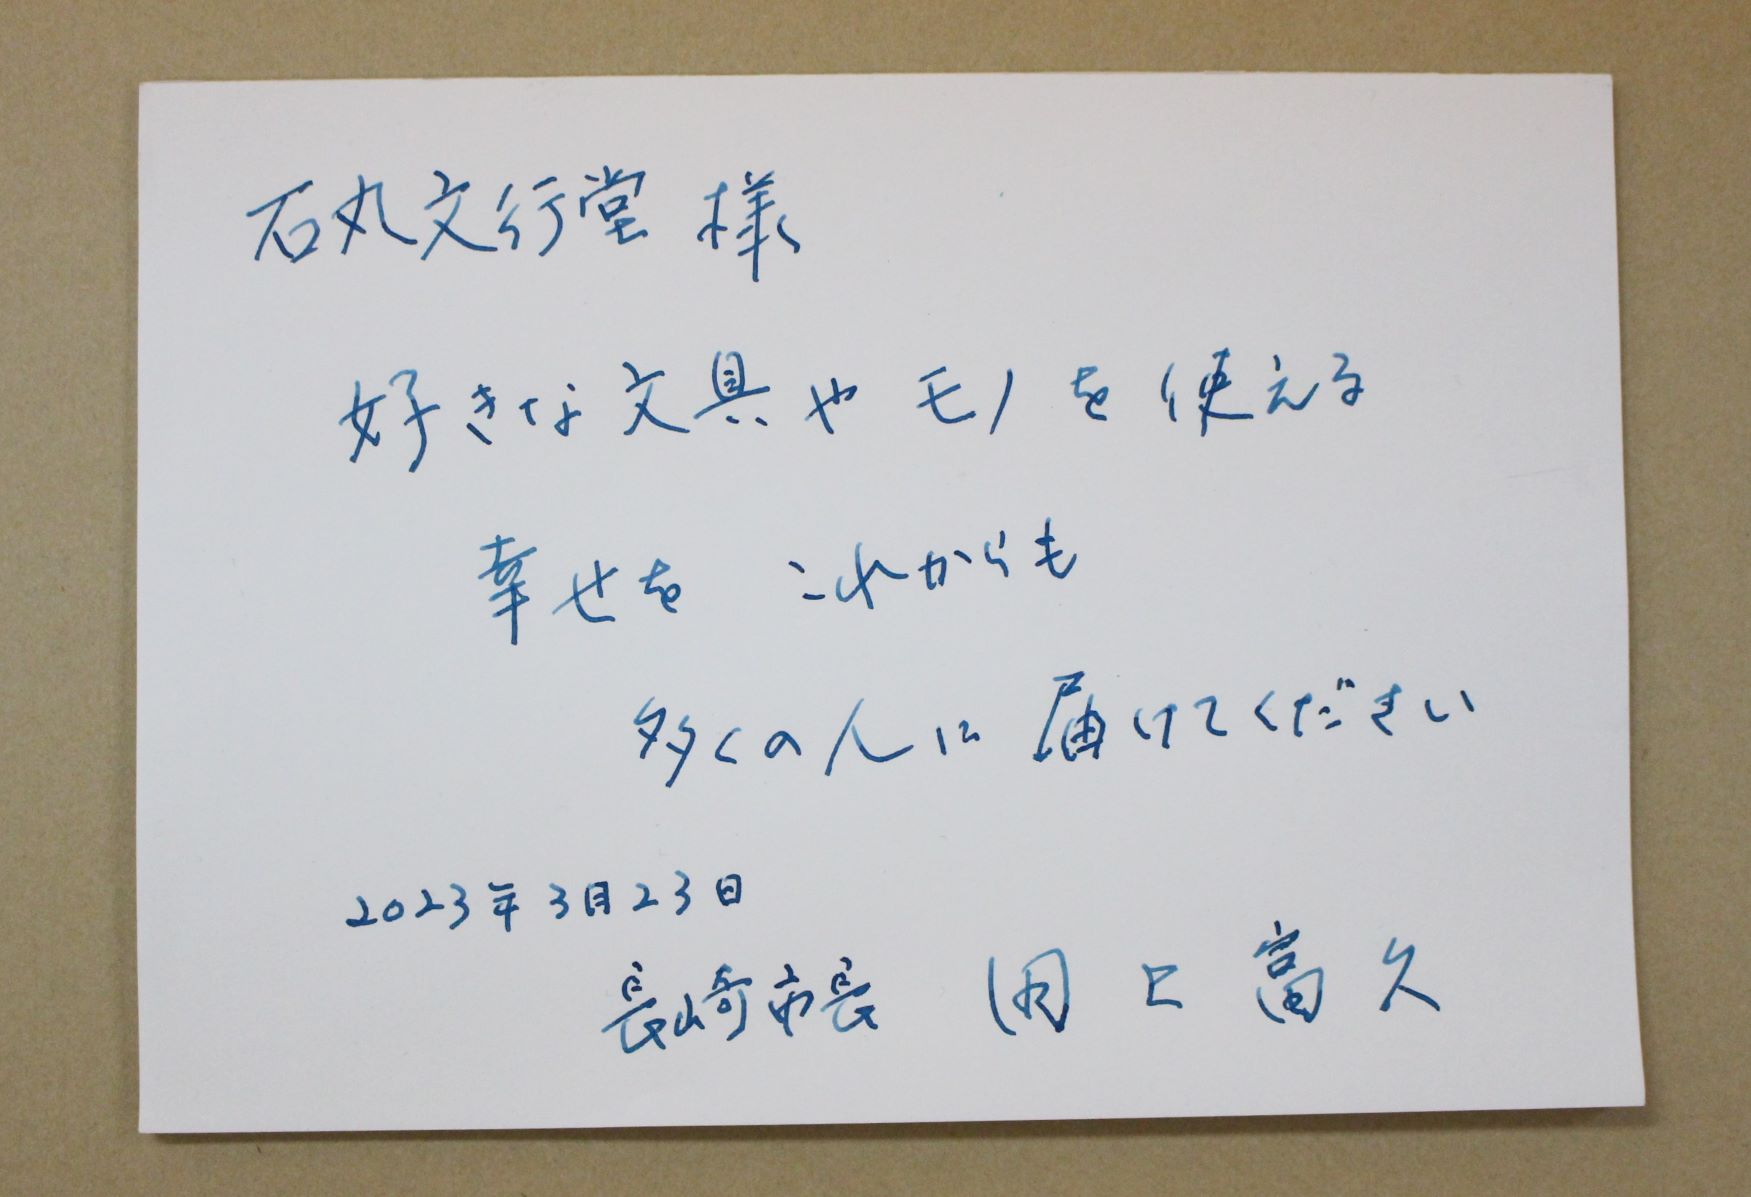 石丸文行堂 様
好きな文具やモノを使える
幸せを これからも
多くの人に 届けてください
2023年3月23日
長崎市長 田上富久